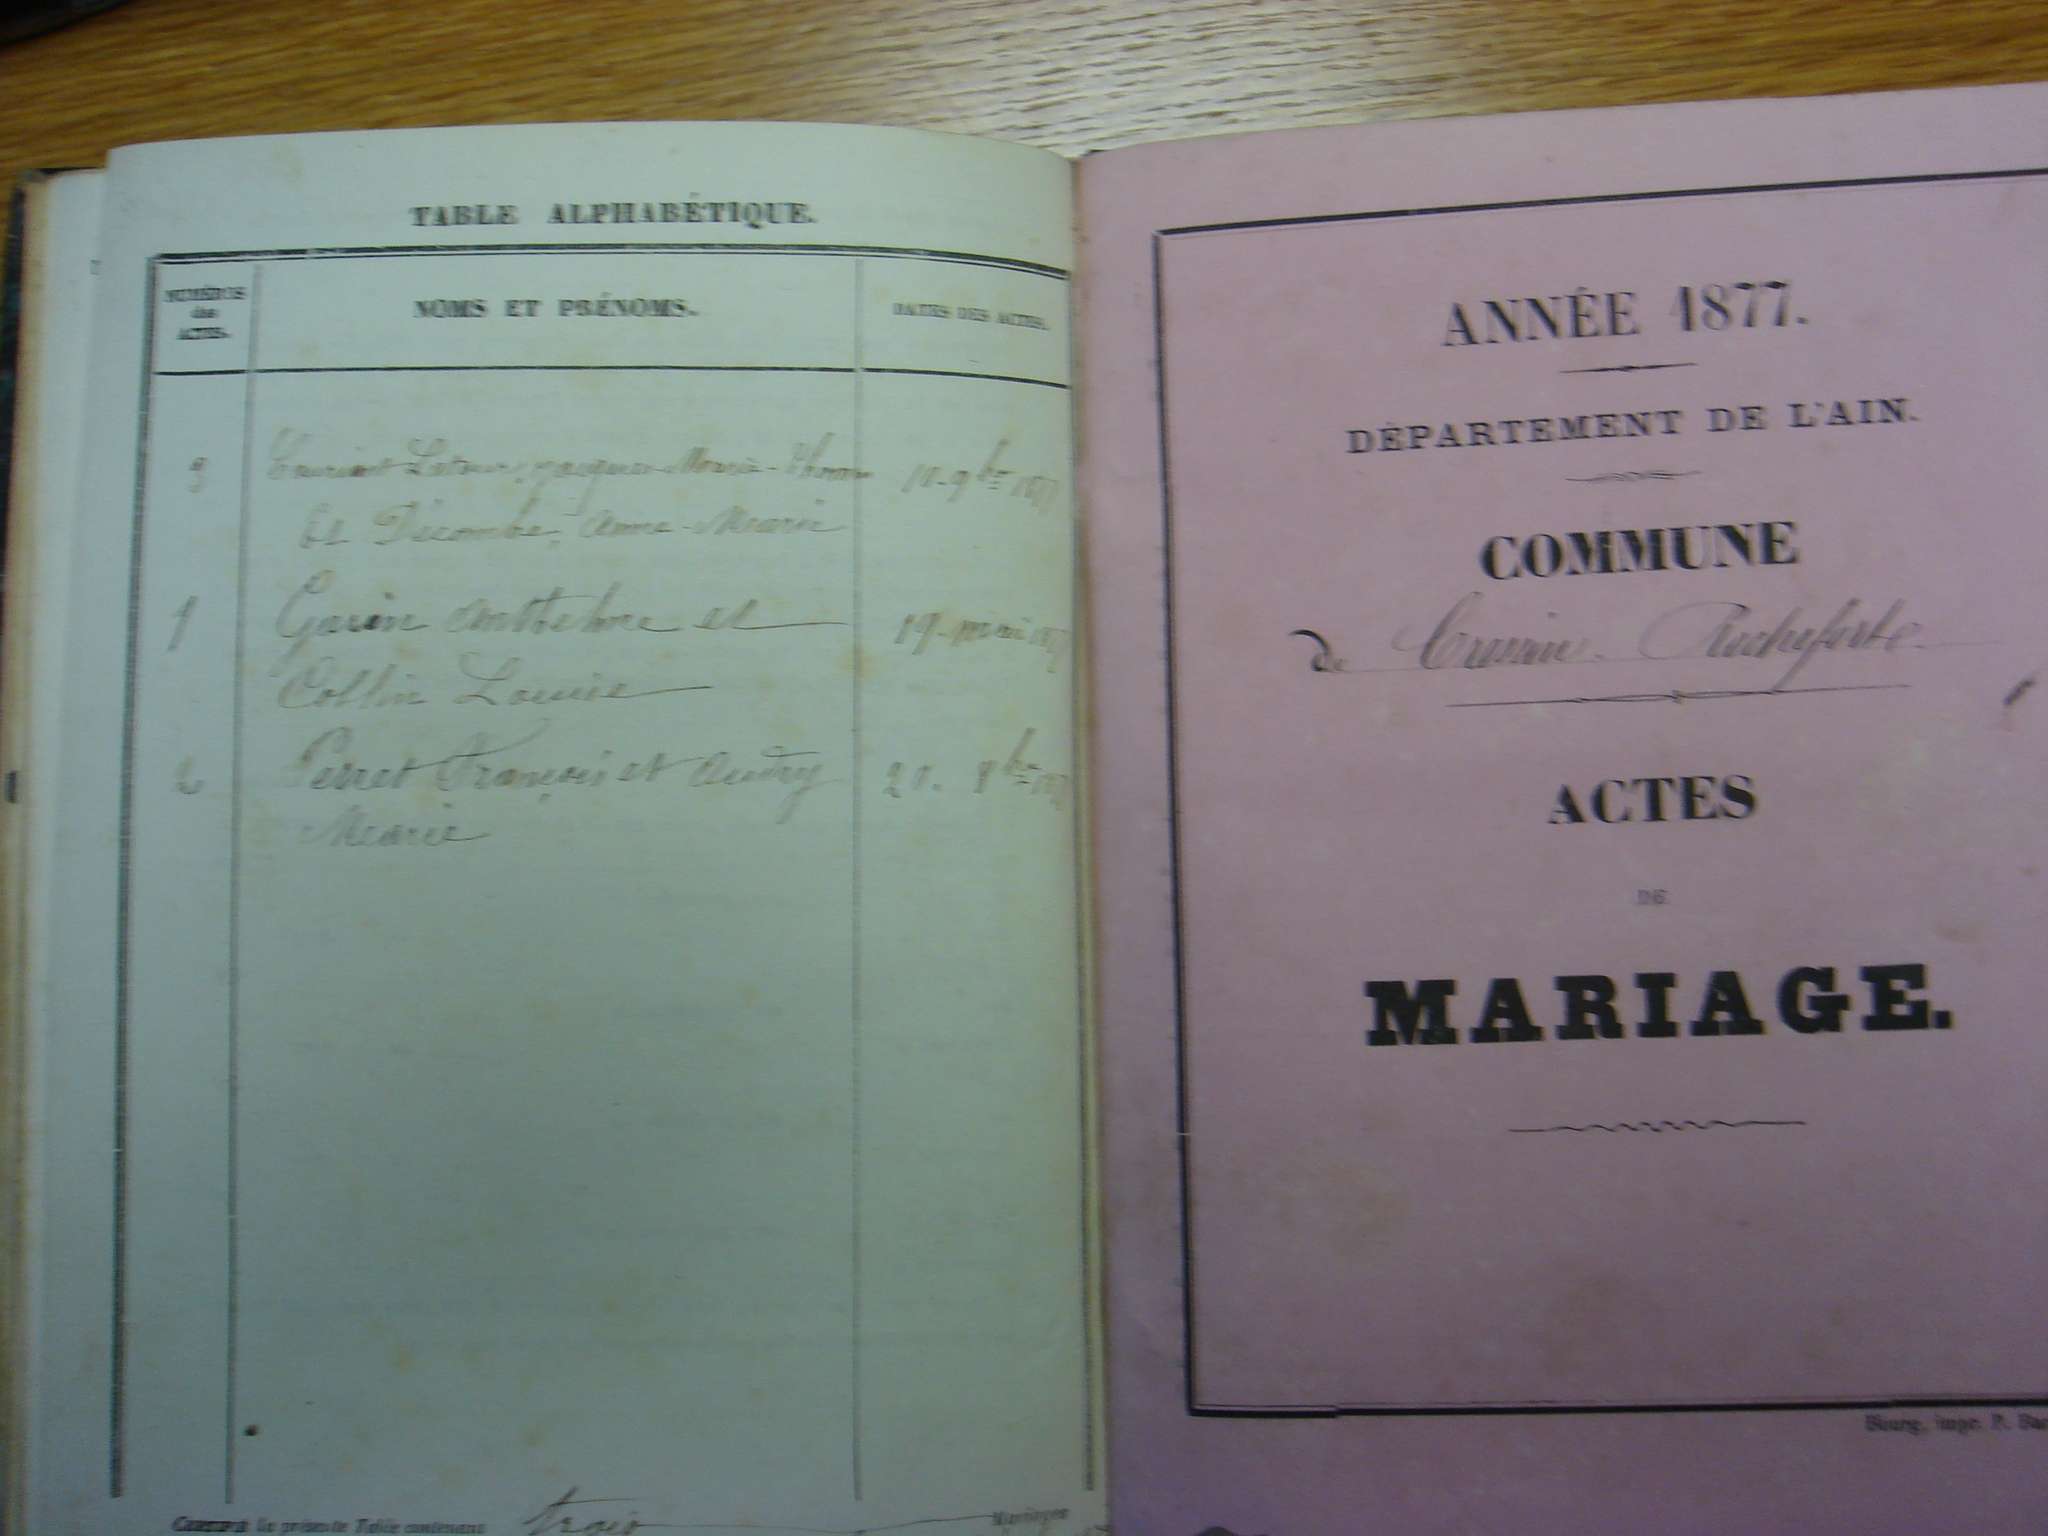 TABLE ALPHABÉTIQUE.
NUMÉROS
des
ACTES.
NOMS ET PRÉNOMS.
DATES DES ACTES.
3 Latour, Jacques-Marie- 10-9bre 1877
et Décombe, Anne-Marie
1 Garin Anthelme et 19-mai 1877
Collin Louise
2 Perret François et Andry 21. 8bre 1877
Marie
Certifié la présente Table contenant trois Mariages
ANNÉE 1877.
DÉPARTEMENT DE L'AIN.
COMMUNE
de Cressin-Rochefort
ACTES
DE
MARIAGE.
Bourg, impr. P.